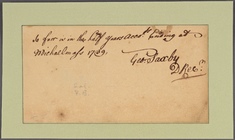 So far in the half years Accots. Ending at
Michallmass 1729.
Geo: Saxby
D Recr.